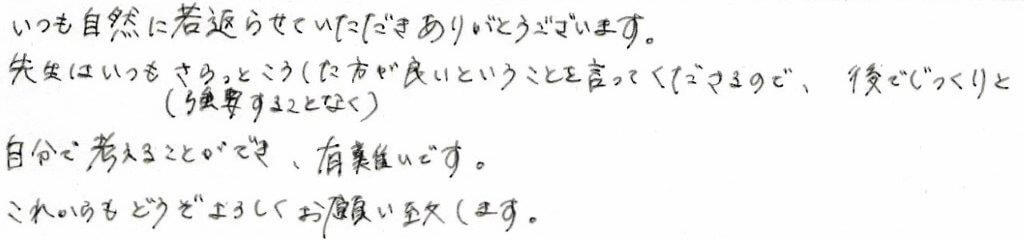 いつも自然に若返らせていただきありがとうございます。
先生はいつもさらっとこうした方が良いということを言ってくださるので、後でじっくりと
(強要することなく)
自分で考えることができ、有難いです。
これからもどうぞよろしくお願い致します。